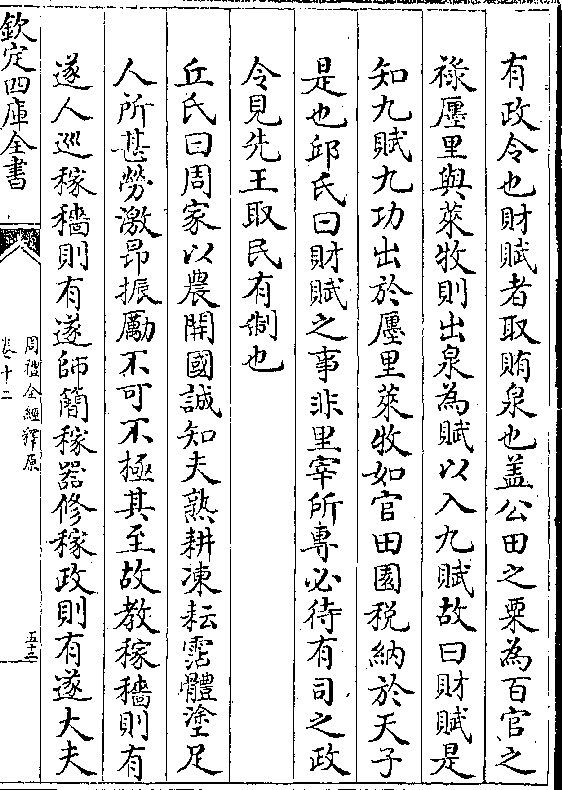 有政令也財賦者取賄泉也盖公田之粟為百官之
祿廛里與萊牧則出泉為賦以入九賦故曰財賦是
知九賦九功出於廛里萊牧如官田園税納於天子
是也邱氏曰財賦之事非里宰所專必待有司之政
令見先王取民有制也
丘氏曰周家以農開國誠知夫熟耕凍耘霑體塗足
人所甚勞激昻振厲不可不極其至故教稼穡則有
遂人巡稼穡則有遂師簡稼器修稼政則有遂大夫
欽定四庫全書
周禮全經釋原
卷十二
五十三